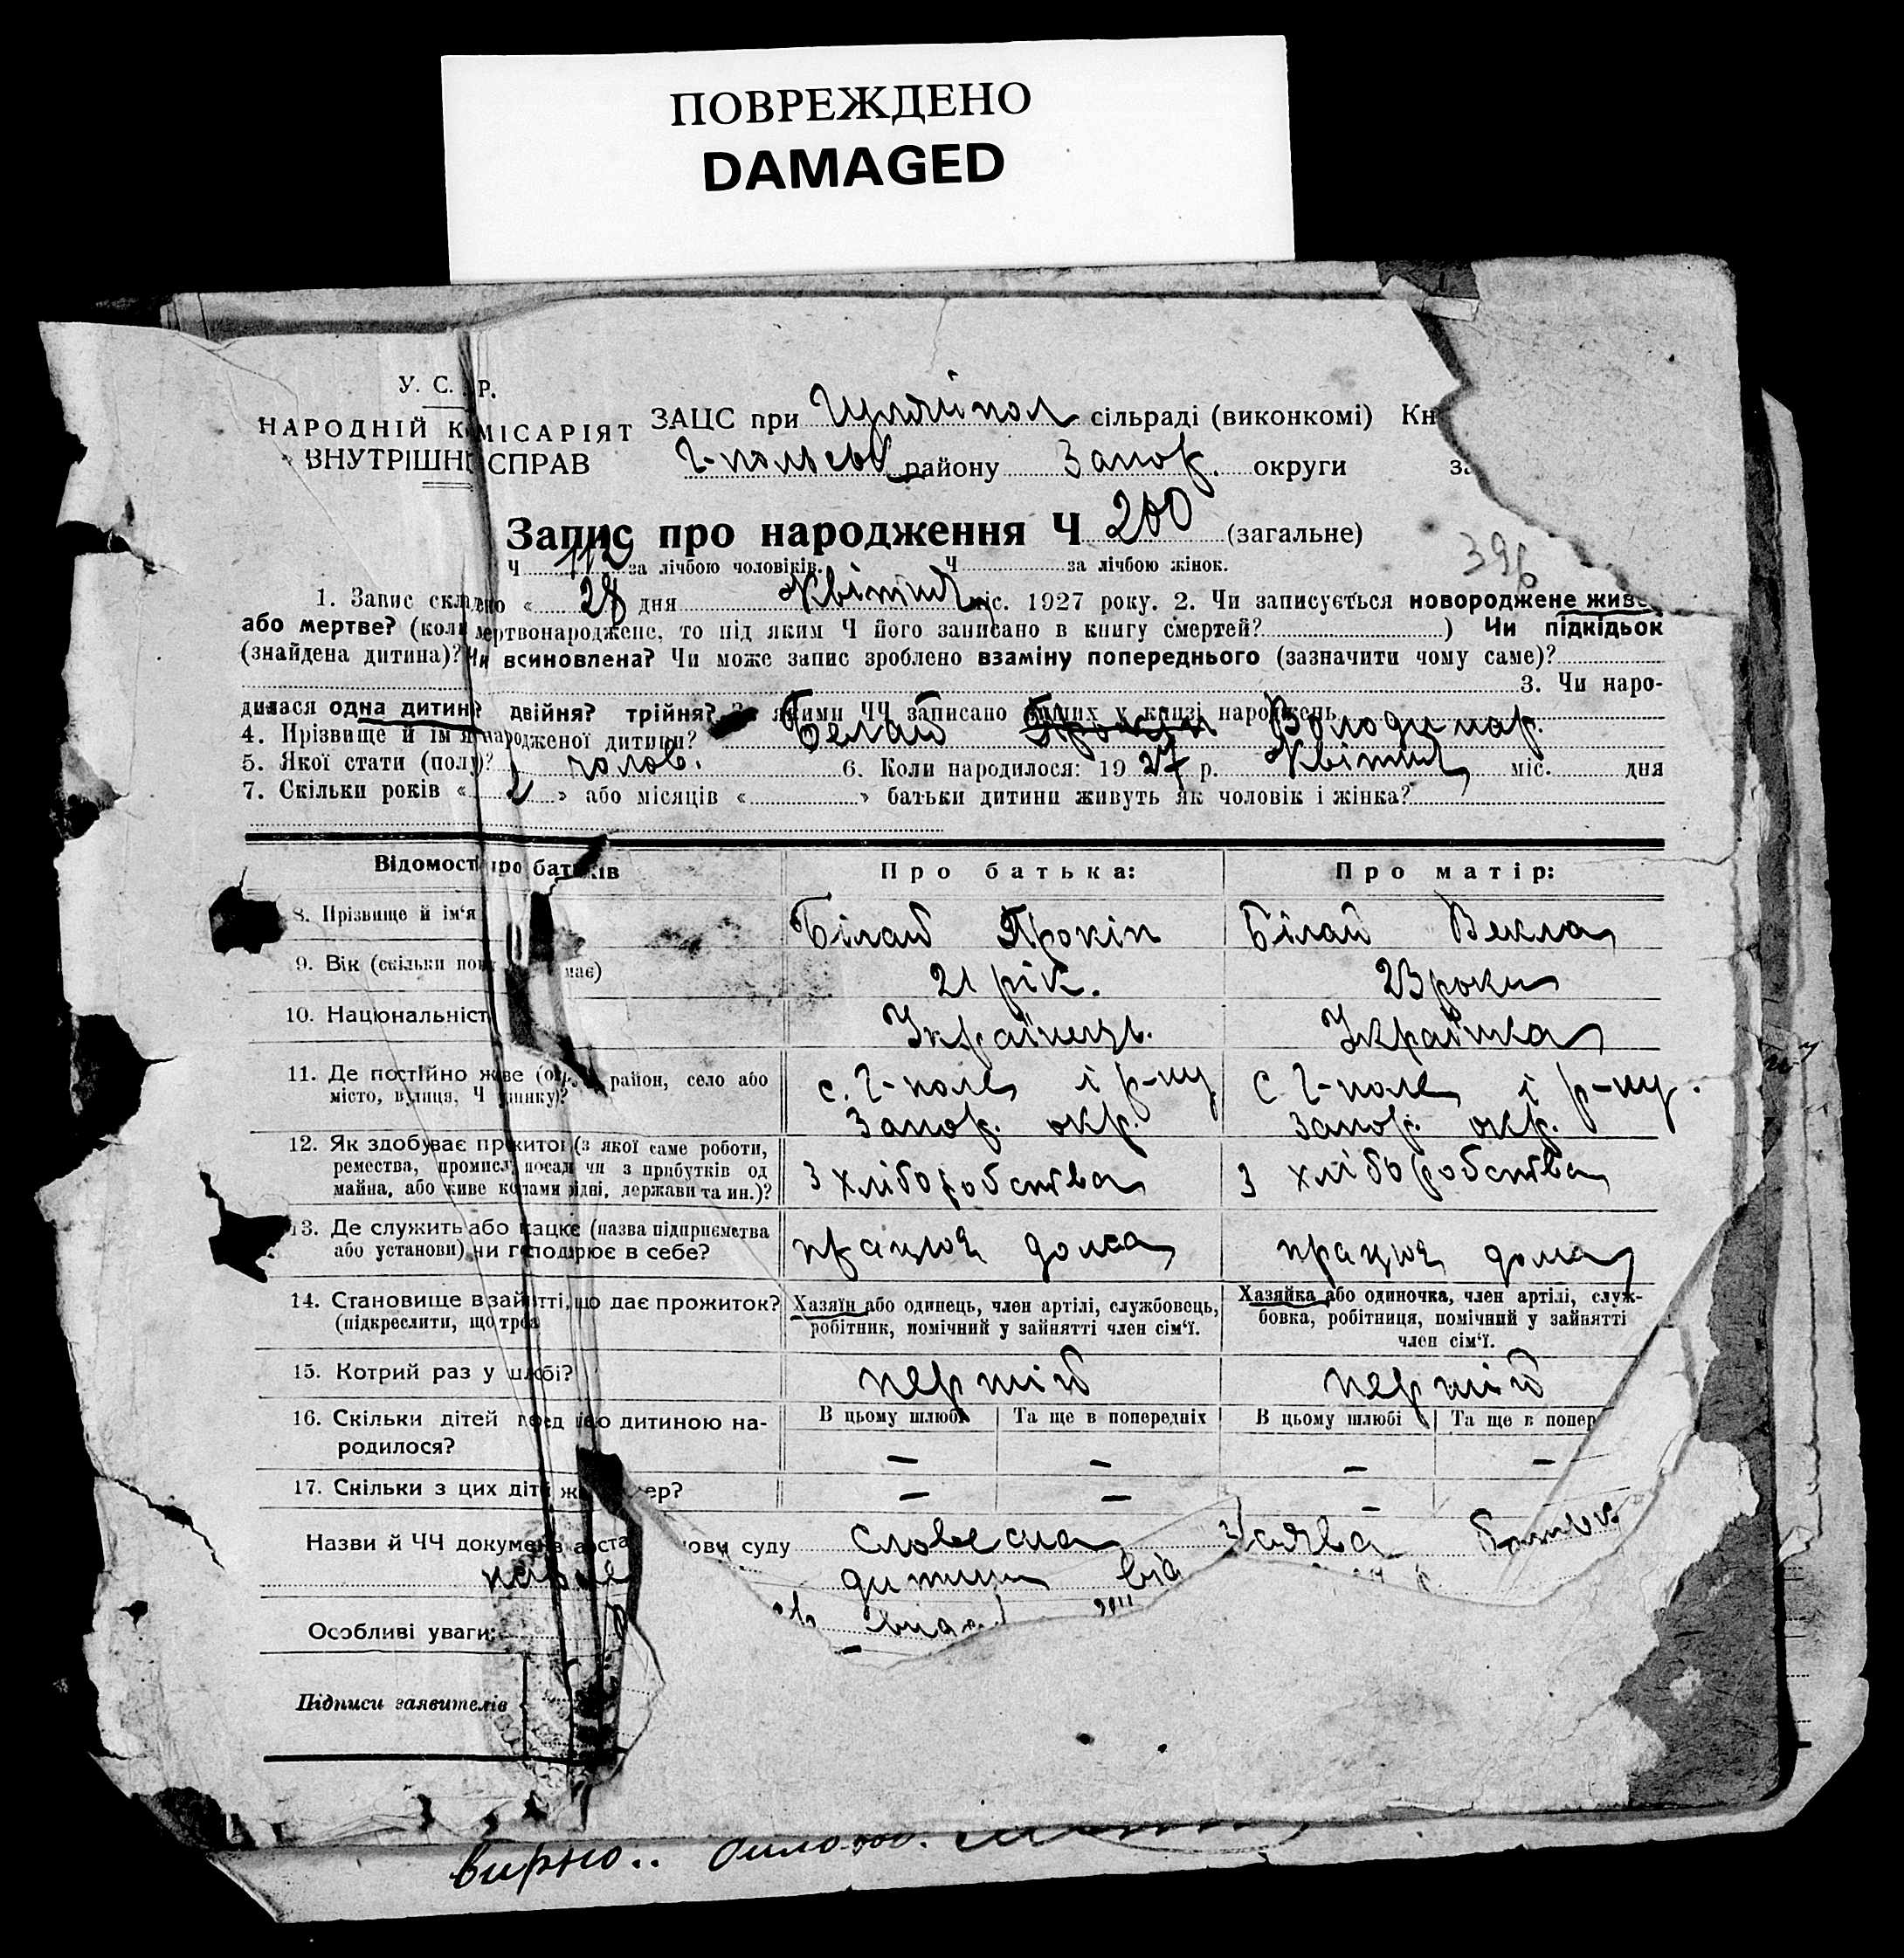 ПОВРЕЖДЕНО
DAMAGED
У. С. Р.
НАРОДНІЙ КОМІСАРІЯТ
ВНУТРІШНІ СПРАВ
ЗАЦС при Гуляйпол сільраді (виконкомі) Кн
Г-польськ району Запор. округи за
Запис про народження Ч 200 (загальне)
396
Ч 112 за лічбою чоловіків. Ч за лічбою жінок.
1. Запис складено « 28 дня Квітня міс. 1927 року. 2. Чи записується новороджене живе
або мертве? (коли мертвонароджене, то під яким Ч його записано в книгу смертей? ) Чи підкідьок
(знайдена дитина)? Чи всиновлена? Чи може запис зроблено взаміну попереднього (зазначити чому саме)?
3. Чи наро-
дилася одна дитина? двійня? трійня? За якими ЧЧ записано инших у книзі народжень
4. Прізвище й ім'я народженої дитини? Белай Володимар.
5. Якої стати (полу)? чолов. 6. Коли народилося: 19 27 р. Квітня міс. дня
7. Скільки років « 2 » або місяців « » батьки дитини живуть як чоловік і жінка?
Відомості про батьків Про батька: Про матір:
8. Прізвище й ім'я Білай Прокіп Білай Векла
9. Вік (скільки пов має) 21 рік. 23 роки
10. Національніст Українець. Українка
11. Де постійно живе (окр район, село або с. Г-поле і р-ну с Г-поле і р-ну.
місто, вулиця, Ч будинку)? Запор. окр. Запор. окр.
12. Як здобуває прожиток (з якої саме роботи,
ремества, промисл, посади чи з прибутків од З хліборобства З хліборобства
майна, або живе коштами рідні, держави та ин.)?
13. Де служить або працює (назва підприємства працює дома працює дома
або установи) чи господарює в себе?
14. Становище в зайнятті, що дає прожиток? Хазяїн або одинець, член артілі, службовець, Хазяйка або одиночка, член артілі, служ-
(підкреслити, що треба робітник, помічний у зайнятті член сім'ї. бовка, робітниця, помічний у зайнятті
член сім'ї.
15. Котрий раз у шлюбі? перший перший
16. Скільки дітей перед цією дитиною на- В цьому шлюбі Та ще в попередніх В цьому шлюбі Та ще в попер
родилося? — — — —
17. Скільки з цих діт ж мер? — — —
Назви й ЧЧ документів поста нови суду словесна Заява
дитини від
Особливі уваги:
Підписи заявителів
вирно..